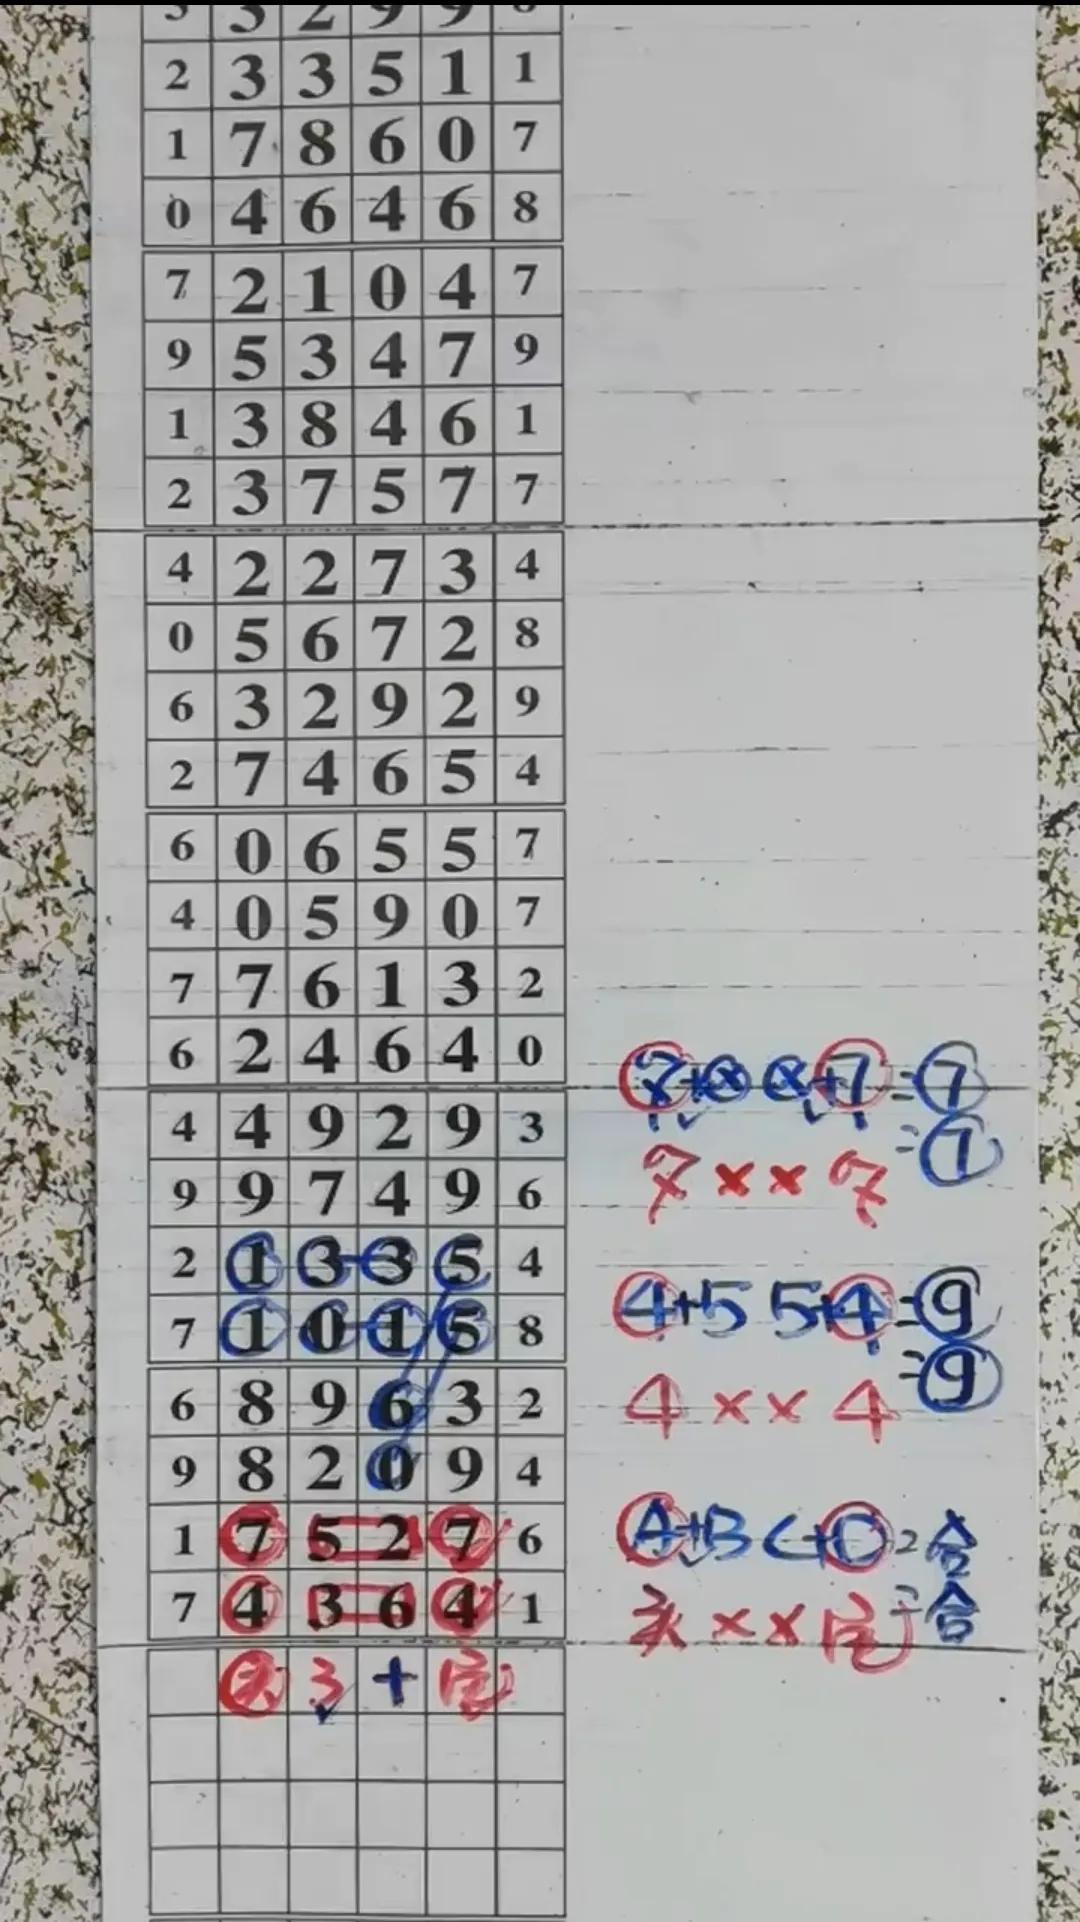 2 3 3 5 1 1
1 7 8 6 0 7
0 4 6 4 6 8
7 2 1 0 4 7
9 5 3 4 7 9
1 3 8 4 6 1
2 3 7 5 7 7
4 2 2 7 3 4
0 5 6 7 2 8
6 3 2 9 2 9
2 7 4 6 5 4
6 0 6 5 5 7
4 0 5 9 0 7
7 7 6 1 3 2
6 2 4 6 4 0
4 4 9 2 9 3
9 9 7 4 9 6
2 1 3 3 5 4
7 1 0 1 5 8
6 8 9 6 3 2
9 8 2 0 9 4
1 7 5 2 7 6
7 4 3 6 4 1
3 +
=7
=7
7 × × 7
4+5 5+4=9
=9
4 × × 4
A+B C+D=合
头 × ×
=合